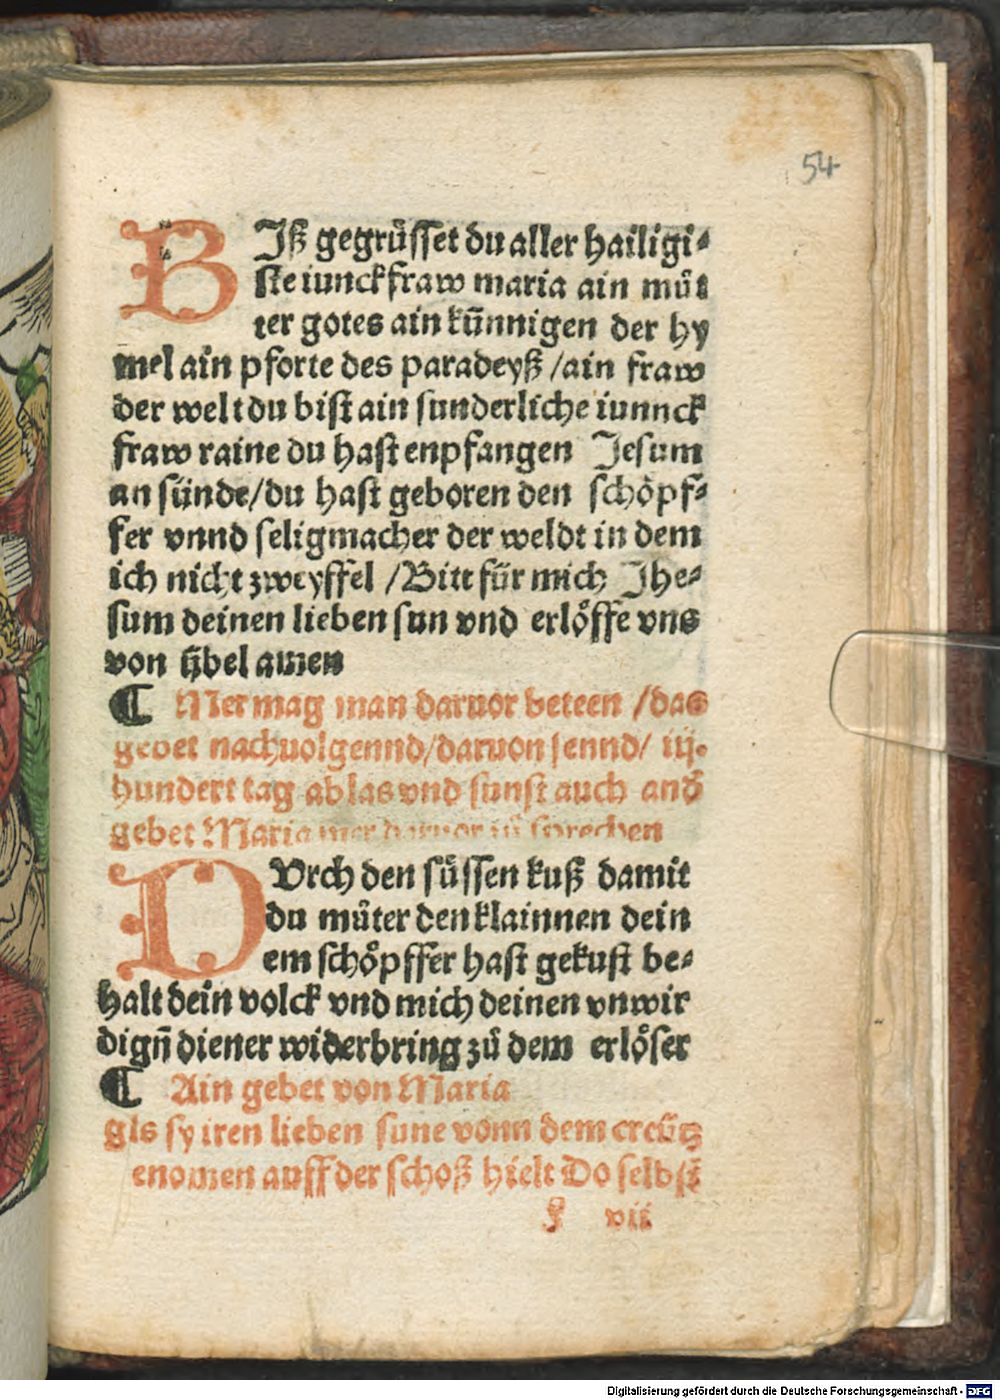 54
BIß gegrüsset du aller hailigi⸗
ste iunckfraw maria ain müt
ter gotes ain kün̄nigen der hy
mel ain pforte des paradeyß /ain fraw
der welt du bist ain sunderliche iunnck
fraw raine du hast enpfangen Jesum
an sünde/du hast geboren den schöpf⸗
fer vnnd seligmacher der weldt in dem
ich nicht zweyffel /Bitt für mich Jhe⸗
sum deinen lieben sun vnd erlöſſe vns
von übel amen
¶ Mer mag man daruor beteen /das
gebet nachuolgennd/daruon sennd/ iij.
hundert tag ablas vnd sunst auch and̄
gebet Maria mer daruor zů sprechen
DVrch den süssen kuß damit
du můter den klainnen dein
em schöpffer hast gekust be⸗
halt dein volck vnd mich deinen vnwir
dign̄ diener widerbring zů dem erlöser
¶ Ain gebet von Maria
als sy iren lieben sune vonn dem creütz
enomen auff der schoß hielt Do selbst
f vii
Digitalisierung gefördert durch die Deutsche Forschungsgemeinschaft - DFG